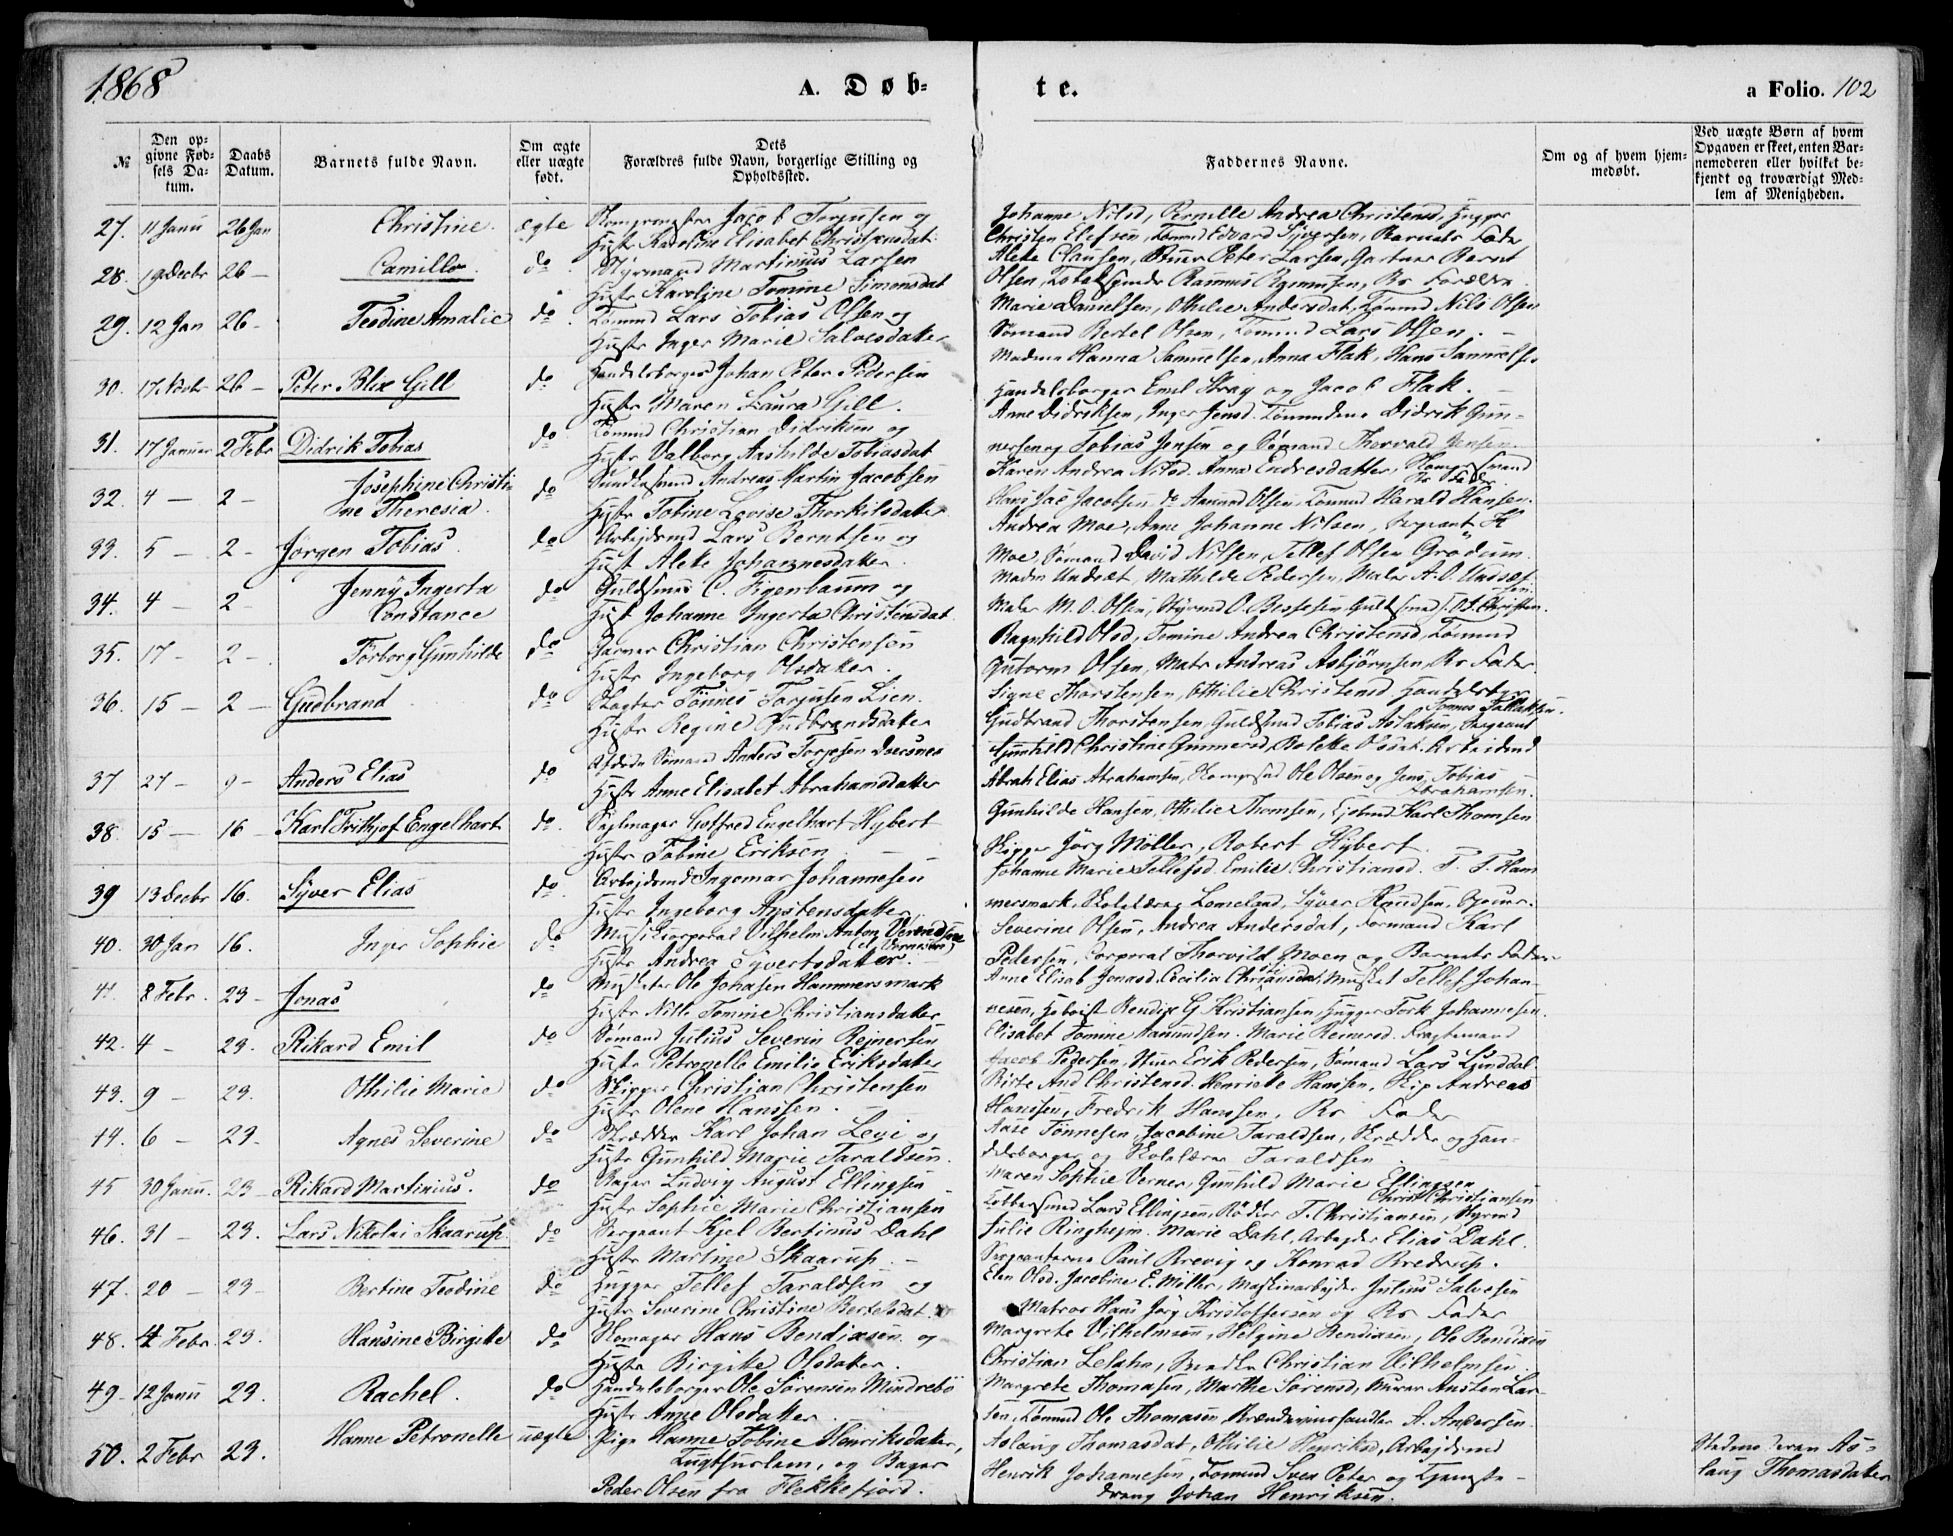 1868
A. Døb-
te.
a Folio. 102
№
Den opgivne Fødsels Datum.
Daabs Datum.
Barnets fulde Navn.
Om ægte eller uægte født.
Dets Forældres fulde Navn, borgerlige Stilling og Opholdssted.
Faddernes Navne.
Om og af hvem hjemmedøbt.
Ved uægte Børn af hvem Opgaven er skeet, enten Barnemoderen eller hvilket bekjendt og troværdigt Medlem af Menigheden.
27. 11 Janu 26 Jan Christine. ægte Jacob Torjusen og
Hustr Karoline Elisabet Christensdat.
Johanne Nilsd, Pernille Andrea Christensd, Hugger
Christen Elefsen, Tømmd Edvard Syversen, Barnets Fader
28. 19 Decbr 26 — Camilla. do Styrmand Martinius Larsen
Hustr Karoline Tomine Simonsdat
Alete Clausen, Stuer Peter Larsen, Gartner Bernt
Olsen, Rasmus Rasmussen, Br Forældre
29. 12 Jan 26 - Teodine Amalie do Tømmd Lars Tobias Olsen og
Hustr Inger Marie Salvesdatter
Marie Danielsen, Othilie Andersdat, Tømmd Nils Olsen
Sømand Bertel Olsen, Tømmd Lars Olsen. —
30. 17 Octbr 26 - Peter Blix Gill do Handelsborger Johan Peter Pedersen
Hustr Maren Laura Gill.
Madme Hanna Samuelsen, Anna Flak, Hans Samuelsen
Handelsborger Emil Stray og Jacob Flak. —
31. 17 Januar 2 Febr Didrik Tobias do Tømmd Christian Didriksen og
Hustr Valborg Aashilde Tobiasdat
Anne Didriksen, Inger Jensd. Tømmdene Didrik Gun-
nersen og Tobias Jensen og Sømand Thorvald Jensen.
32. 4 — 2 - Josephine Christi-
ne Theresia. do Andreas Martin Jacobsen
Hustr Tobine Lovise Thorkilsdatter
Karen Andrea Nilsd. Anna Endresdatter,
Br Fader.
Hans Jac Jacobsen, do Aanund Olsen, Tømmd Harald Hansen.
33. 5 — 2 - Jørgen Tobias. do Arbejdsmd Lars Berntsen og
Hust Alete Johannesdatter.
Andrea Moe, Anne Johanne Nilsen, Sergeant H
Moe, Sømand David Nilsen, Tellef Olsen Grødum.
34. 4 — 2 - Jenny Ingerta
Constance do Guldsmed C. Figenbaum og
Hust Johanne Ingerta Christensdat
Madm Undset, Mathilde Pedersen, Maler A. O. Undset
Maler M. O. Olsen, Styrmd O. Bessesen, Guldsmed Christen-
sen.
35. 17 - 2 - Torborg Gunhilde do Garver Christian Christensen
Hustr Ingeborg Olsdatter.
Ragnhild Olsd, Timine Andrea Christensd, Tømmd
Gutorm Olsen, Matr Andreas Asbjørnsen, Br Fader
36. 15 — 2 — Gudbrand do Slagter Tønnes Torjusen Lien.
Hustr Regine Gudbrandsdatter
Signe Thorstensen, Othilie Christensd. Handelsbgr
Gudbrand Thorstensen, Guldsmed Tobias Aslaksen, Sergeant
Tønnes Tallaksen.
37 27 - 9 - Anders Elias do Sømand Anders Torjesen
Hustr Anne Elisabet Abrahamsdatter
Gunhild Christine Gunnersd, Bolette Olsdat. Arbeidsmd
Abrah Elias Abrahamsen, Ole Olsen og Jens Tobias
Abrahamsen.
38. 15 — 16 - Karl Frithjof Engelhart do. Sejlmager Gotfred Engelhart Hybert
Hustr Tobine Eriksen. —
Gunhilde Hansen, Othilie Thomsen, Karl Thomsen
Skipper Jørg Møller, Robert Hybert
39 13 Decbr 16. Syver Elias do. Arbejdsmd Ingomar Johannesen
Hustr Ingeborg Austensdatter.
Johanne Marie Tellefsd. Emilie Christiansd. T. T. Ham
mersmark, Skolelærer Lomeland, Syver Knudsen,
40. 30 Jan 16. Inger Sophie do Vilhelm Anton
Hustr Andrea Syvertsdatter. —
Severine Olsen, Andrea Andersdat, Formand Karl
Pedersen, Corporal Thorvild Moen og Barnets Fader
41 8 Febr. 23 — Jonas do Musketer Ole Johasen Hammersmark
Hustr Nille Tomine Christiansdatter
Anne Elisab Jonasd. Cecilia Musket Tellef Johan-
nesen, Hoboist Bendix G Kristiansen, Hugger Terk Johannesen.
42. 4 - 23. Rikard Emil do Sømand Julius Severin Rejnersen
Hustr Petronelle Emilie Eriksdatter
Elisabet Tomine Aanundsen. Marie Reinersd. Fragtemand
Jacob Pedersen, Stuer Erik Pedersen, Sømand Lars Lunddal
43. 9 - 23. Othilie Marie do Skipper Christian Christensen
Hustr Olene Hanssen. —
Birte And Christensd. Henriette Hanssen, Skip Andreas
Hanssen, Fredrik Hanssen, Br Fader
44. 6 - 23 - Agnes Severine do Skrædder Karl Johan Levi og
Hustr Gunhild Marie Taraldsen.
Aase Tønnesen, Jacobine Taraldsen, Skrædder og Han-
delsborger og Skolelærer Taraldsen
45 30 Janu. 23 - Rikard Martinius. do Bager Ludvig August Ellingsen
Hustr Sophie Marie Christiansen
Maren Sophie Verner, Gunhild Marie Ellingsen
Kobbersmed Lars Ellingsen, Rødker T. Christiansen, Styrmd
Christ Christiansen
46. 31 — 23. Lars Nikolai Skaarup. do Sergeant Kjel Bertinus Dahl
Hustr Martine Skaarup. —
Julie Ringhejm. Marie Dahl, Arbejder Elias Dahl.
Sergeanterne Paul Brevig og Konrad Bredrup.
47. 20 — 23 - Bertine Teodine do Hugger Tellef Taraldsen og
Hustr Severine Christine Bertelsdat
Elen Olsd. Jacobine E. Møller, Maskinarbejder Julius Salvesen
Matros Hans Jørg Kristoffersen og Br Fader
48. 4 Febr. 23. Hansine Birgitte do Skomager Hans Bendixsen og
Hustr Birgitte Olsdatter.
Margrete Vilhelmsen, Helgine Bendixsen, Ole Bendixen
Christian Lelahn, Christian Vilhelmsen.
49 - 12 Janu 23. Rachel. do Handelsborger Ole Sørensen Mindrebø
Hustr Anne Olsdatter.
Margrete Thomasen, Marthe Sørensd, Murer Austen Lar-
sen, Tømmd Ole Thomasen, Brændevinshandler A. Andersen
50. 2 Febr 23. Hanne Petronelle uægte Pige Hanne Tobine Henriksdatter,
og Bager
Peder Olsen fra Flekkefjord.
Aslaug Thomasdat, Othilie Henriksd, Arbejdsmd
Henrik Johannesen, Tømmd Sven Peter og Tjeneste-
dreng Johan Henriksen.
As-
laug Thomasdatter